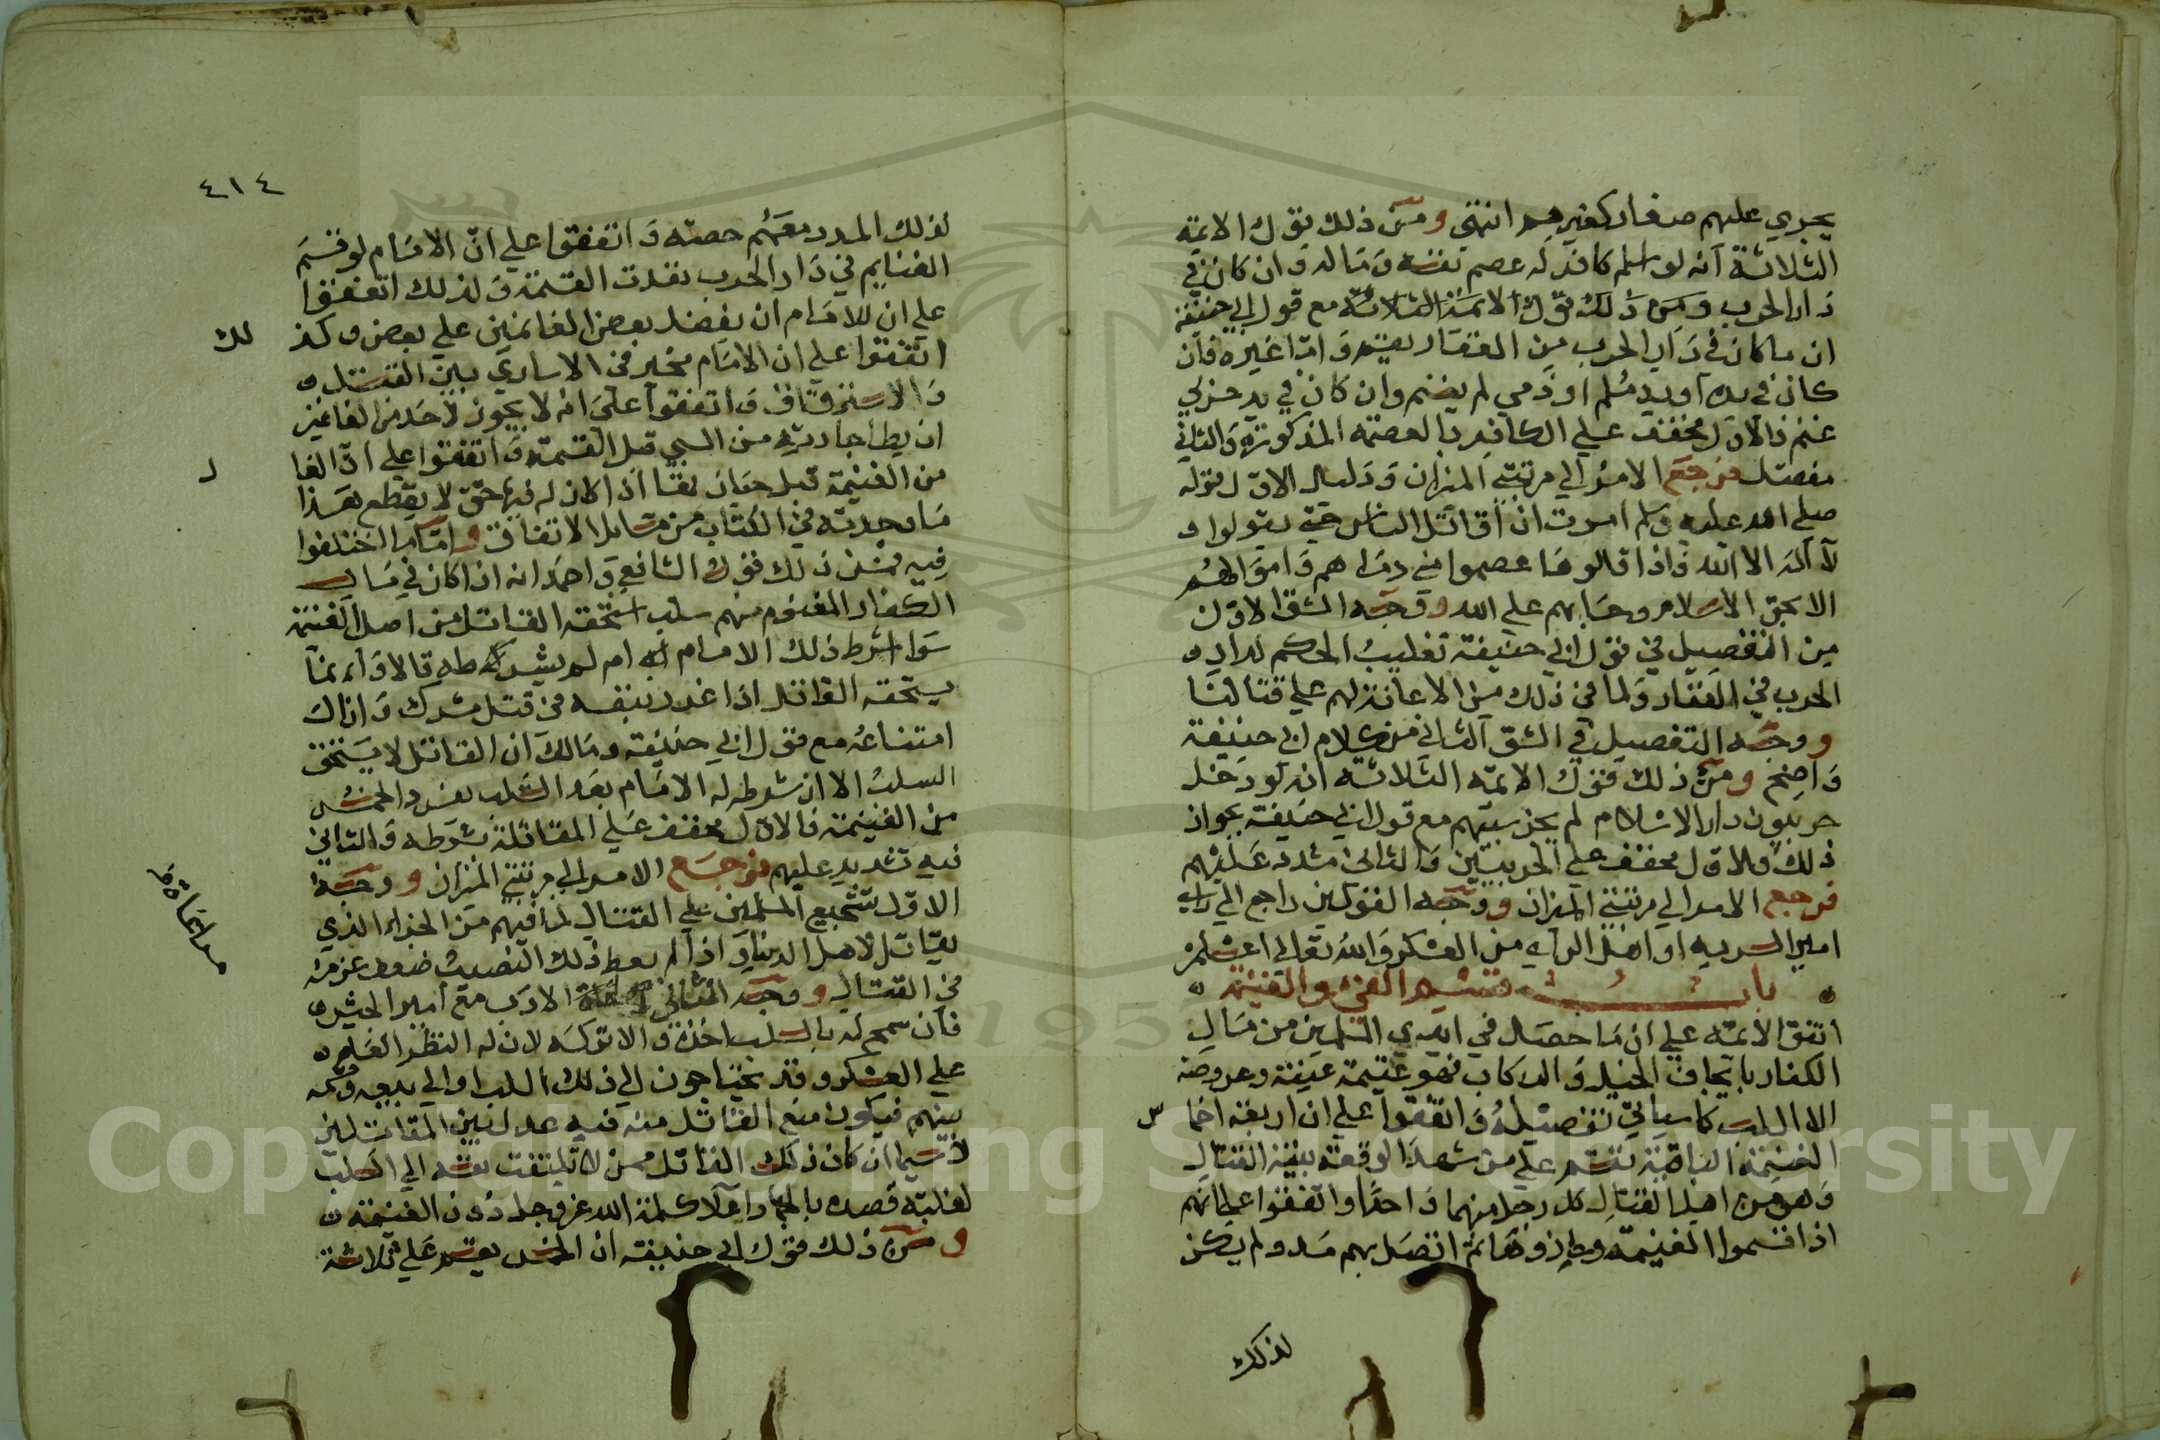 يجري عليهم صغار كغيرهم انتهى ومن ذلك قول الايمة
الثلاثة انه لو اسلم كافر له عصم نفسه وماله وان كان في
دار الحرب ومن ذلك قول الايمة الثلاثة مع قول ابي حنيفة
ان ما كان في دار الحرب من العقار يغنم واما غيره فان
كان في يده او يد مسلم او ذمي لم يغنم وان كان في يد حربي
غنم فالاول مخفف علي الكافر بالعصمة المذكورة والثاني
مفصل فرجع الامر الي مرتبتي الميزان ودليل الاول قوله
صلي الله عليه وسلم امرت ان اقاتل الناس حتي يقولوا
لا اله الا الله فاذا قالوها عصموا مني دماءهم واموالهم
الا بحق الاسلام وحسابهم علي الله ووجه الشق الاول
من التفصيل في قول ابي حنيفة تغليب الحكم لدار
الحرب في العقار ولما في ذلك من الاعانة لهم علي قتالنا
ووجه التفصيل في الشق الثاني من كلام ابي حنيفة
واضح ومن ذلك قول الايمة الثلاثة انه لو دخل
حربيون دار الاسلام لم يجز سبيهم مع قول ابي حنيفة بجواز
ذلك فالاول مخفف علي الحربيين والثاني مشدد عليهم
فرجع الامر الي مرتبتي الميزان ووجه القولين راجع الي راي
امير السرية او اهل الراي من العسكر والله تعالي اعلم
باب قسم الفي والغنيمة
اتفق الايمة علي ان ما حصل في ايدي المسلمين من مال
الكفار بايجاف الخيل والركاب فهو غنيمة عينه وعروضه
الا السلب كما سياتي تفصيله واتفقوا علي ان اربعة اخما س
الغنيمة الباقية تقسم علي من شهد الوقعة بنية القتال
وهو من اهل القتال لكل رجل منهما واحدا واتفقوا علي انهم
اذا قسموا الغنيمة وحازوها ثم اتصل بهم مدد ولم يكن
لذلك
٤١٤
لذلك المدد معهم حصة واتفقوا علي ان الامام لو قسم
الغنايم في دار الحرب نفذت القسمة ولذلك اتفقوا
علي ان للامام ان يفضل بعض الغانمين علي بعض وكذ لك
اتفقوا علي ان الامام مخير في الاساري بين القتل
والاسترقاق واتفقوا علي انه لا يجوز لاحد من الغانمين
ان يطا جارية من السبي قبل القسمة واتفقوا علي ان الغا ل
من الغنيمة قبل حيازتها اذا كان له فيها حق لا يقطع هذا
ما وجدته في الكتاب من مسايل الاتفاق واما ما اختلفوا
فيه فمن ذلك قول الشافعي واحمد انه اذا كان في مال
الكفار المغنوم منهم سلب استحقه القاتل من اصل الغنيمة
سوا شرط ذلك الامام له ام لم يشرطه قالا وانما
يستحقه القاتل اذا غرر بنفسه في قتل مشرك وازال
امتناعه مع قول ابي حنيفة ومالك ان القاتل لا يستحق
السلب الا ان شرطه له الامام
من الغنيمة فالاول مخفف علي المقاتلة بشرطه والثاني
فيه تشديد عليهم فرجع الامر الي مرتبتي الميزان ووجه
الاول تشجيع المسلمين علي القتال لما فيهم من الجزاء الذي
يقاتل لاجل الدنيا واذا لم يعط ذلك النصيب ضعف عزمه
في القتال ووجه الثاني مراعاة الادب مع امير الجيش
فان سمح له بالسلب اخذه والا تركه لان له النظر العام
علي العسكر وقد يحتاجون الي ذلك السلب او الي بيعه
بينهم فيكون منع القاتل منه فيه عدل بين المقاتلين
لا سيما ان كان ذلك القاتل ممن لا تلتفت نفسه الي السلب
لغلبة قصده بالجهاد اعلا كلمة الله عز وجل دون الغنيمة
ومن ذلك قول ابي حنيفة ان الخمس يقسم علي ثلاثة
مراعاة